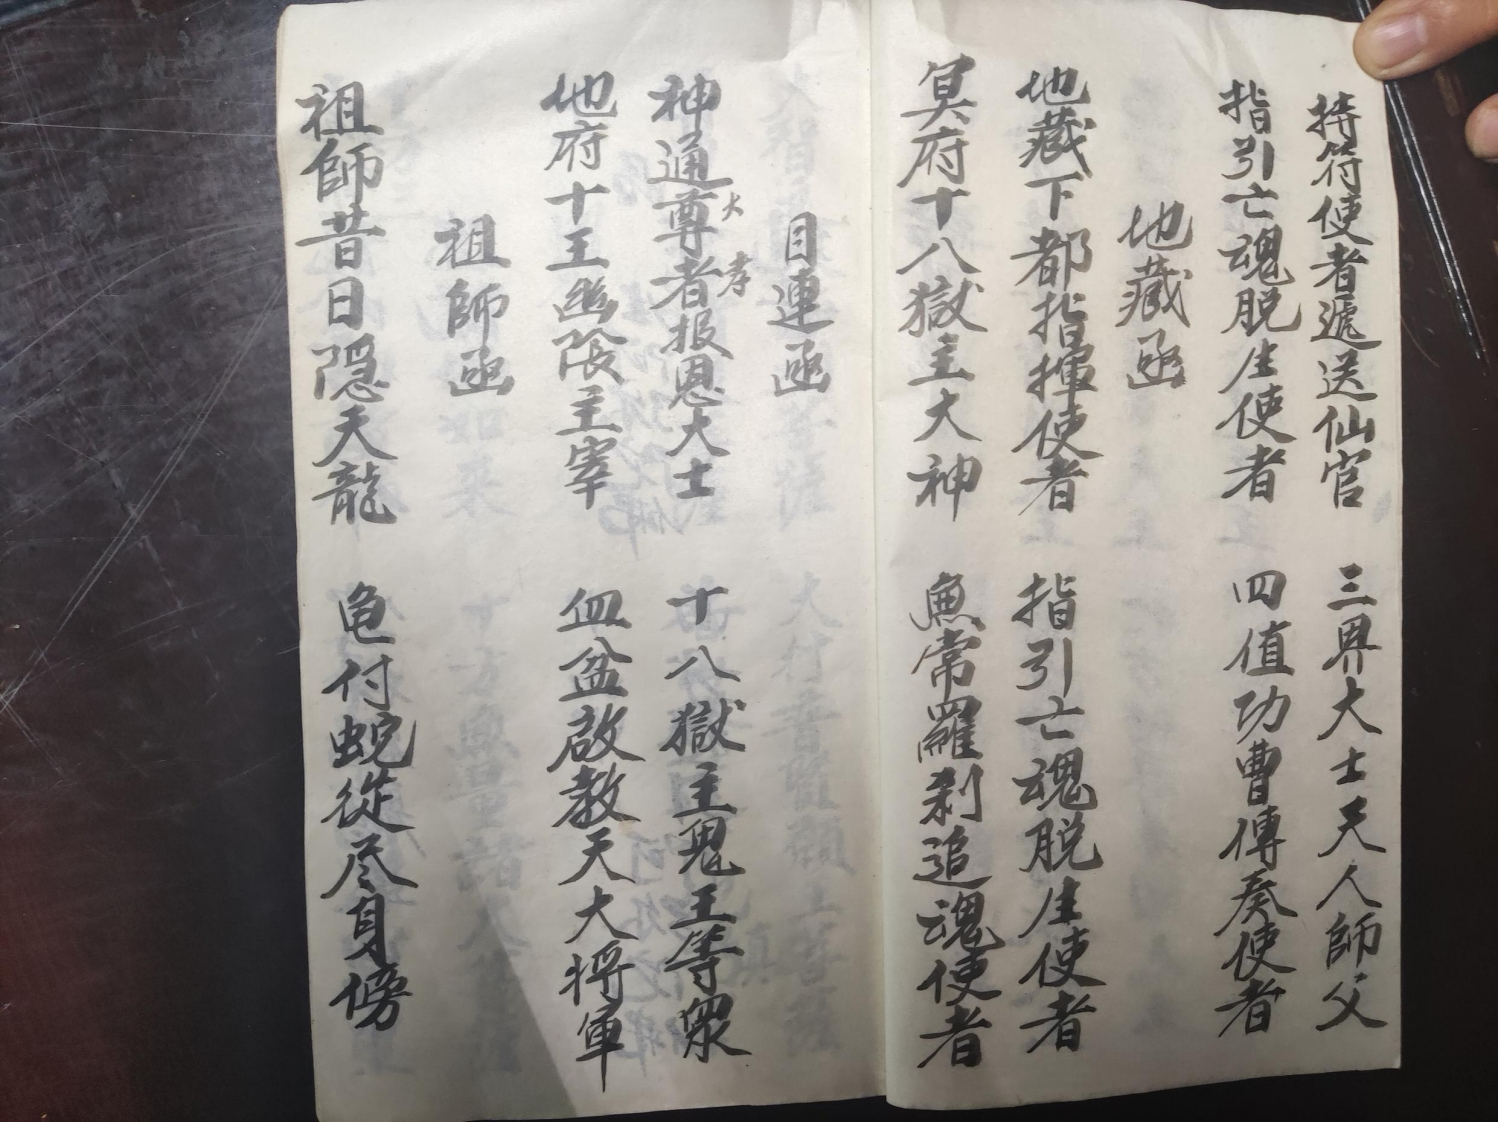 持符使者遞送仙官　三界大士天人師父
指引亡魂脱生使者　四值功曹傳奏使者
地藏函
地藏下都指揮使者　指引亡魂脱生使者
冥府十八獄主大神　無常羅刹追魂使者
目連函
神通尊者报恩大士　十八獄主鬼王等眾
大孝
地府十王幽張主宰　血盆啟教天大将軍
祖師函
祖師昔日隐天龍　龟付蛇從尽身傍